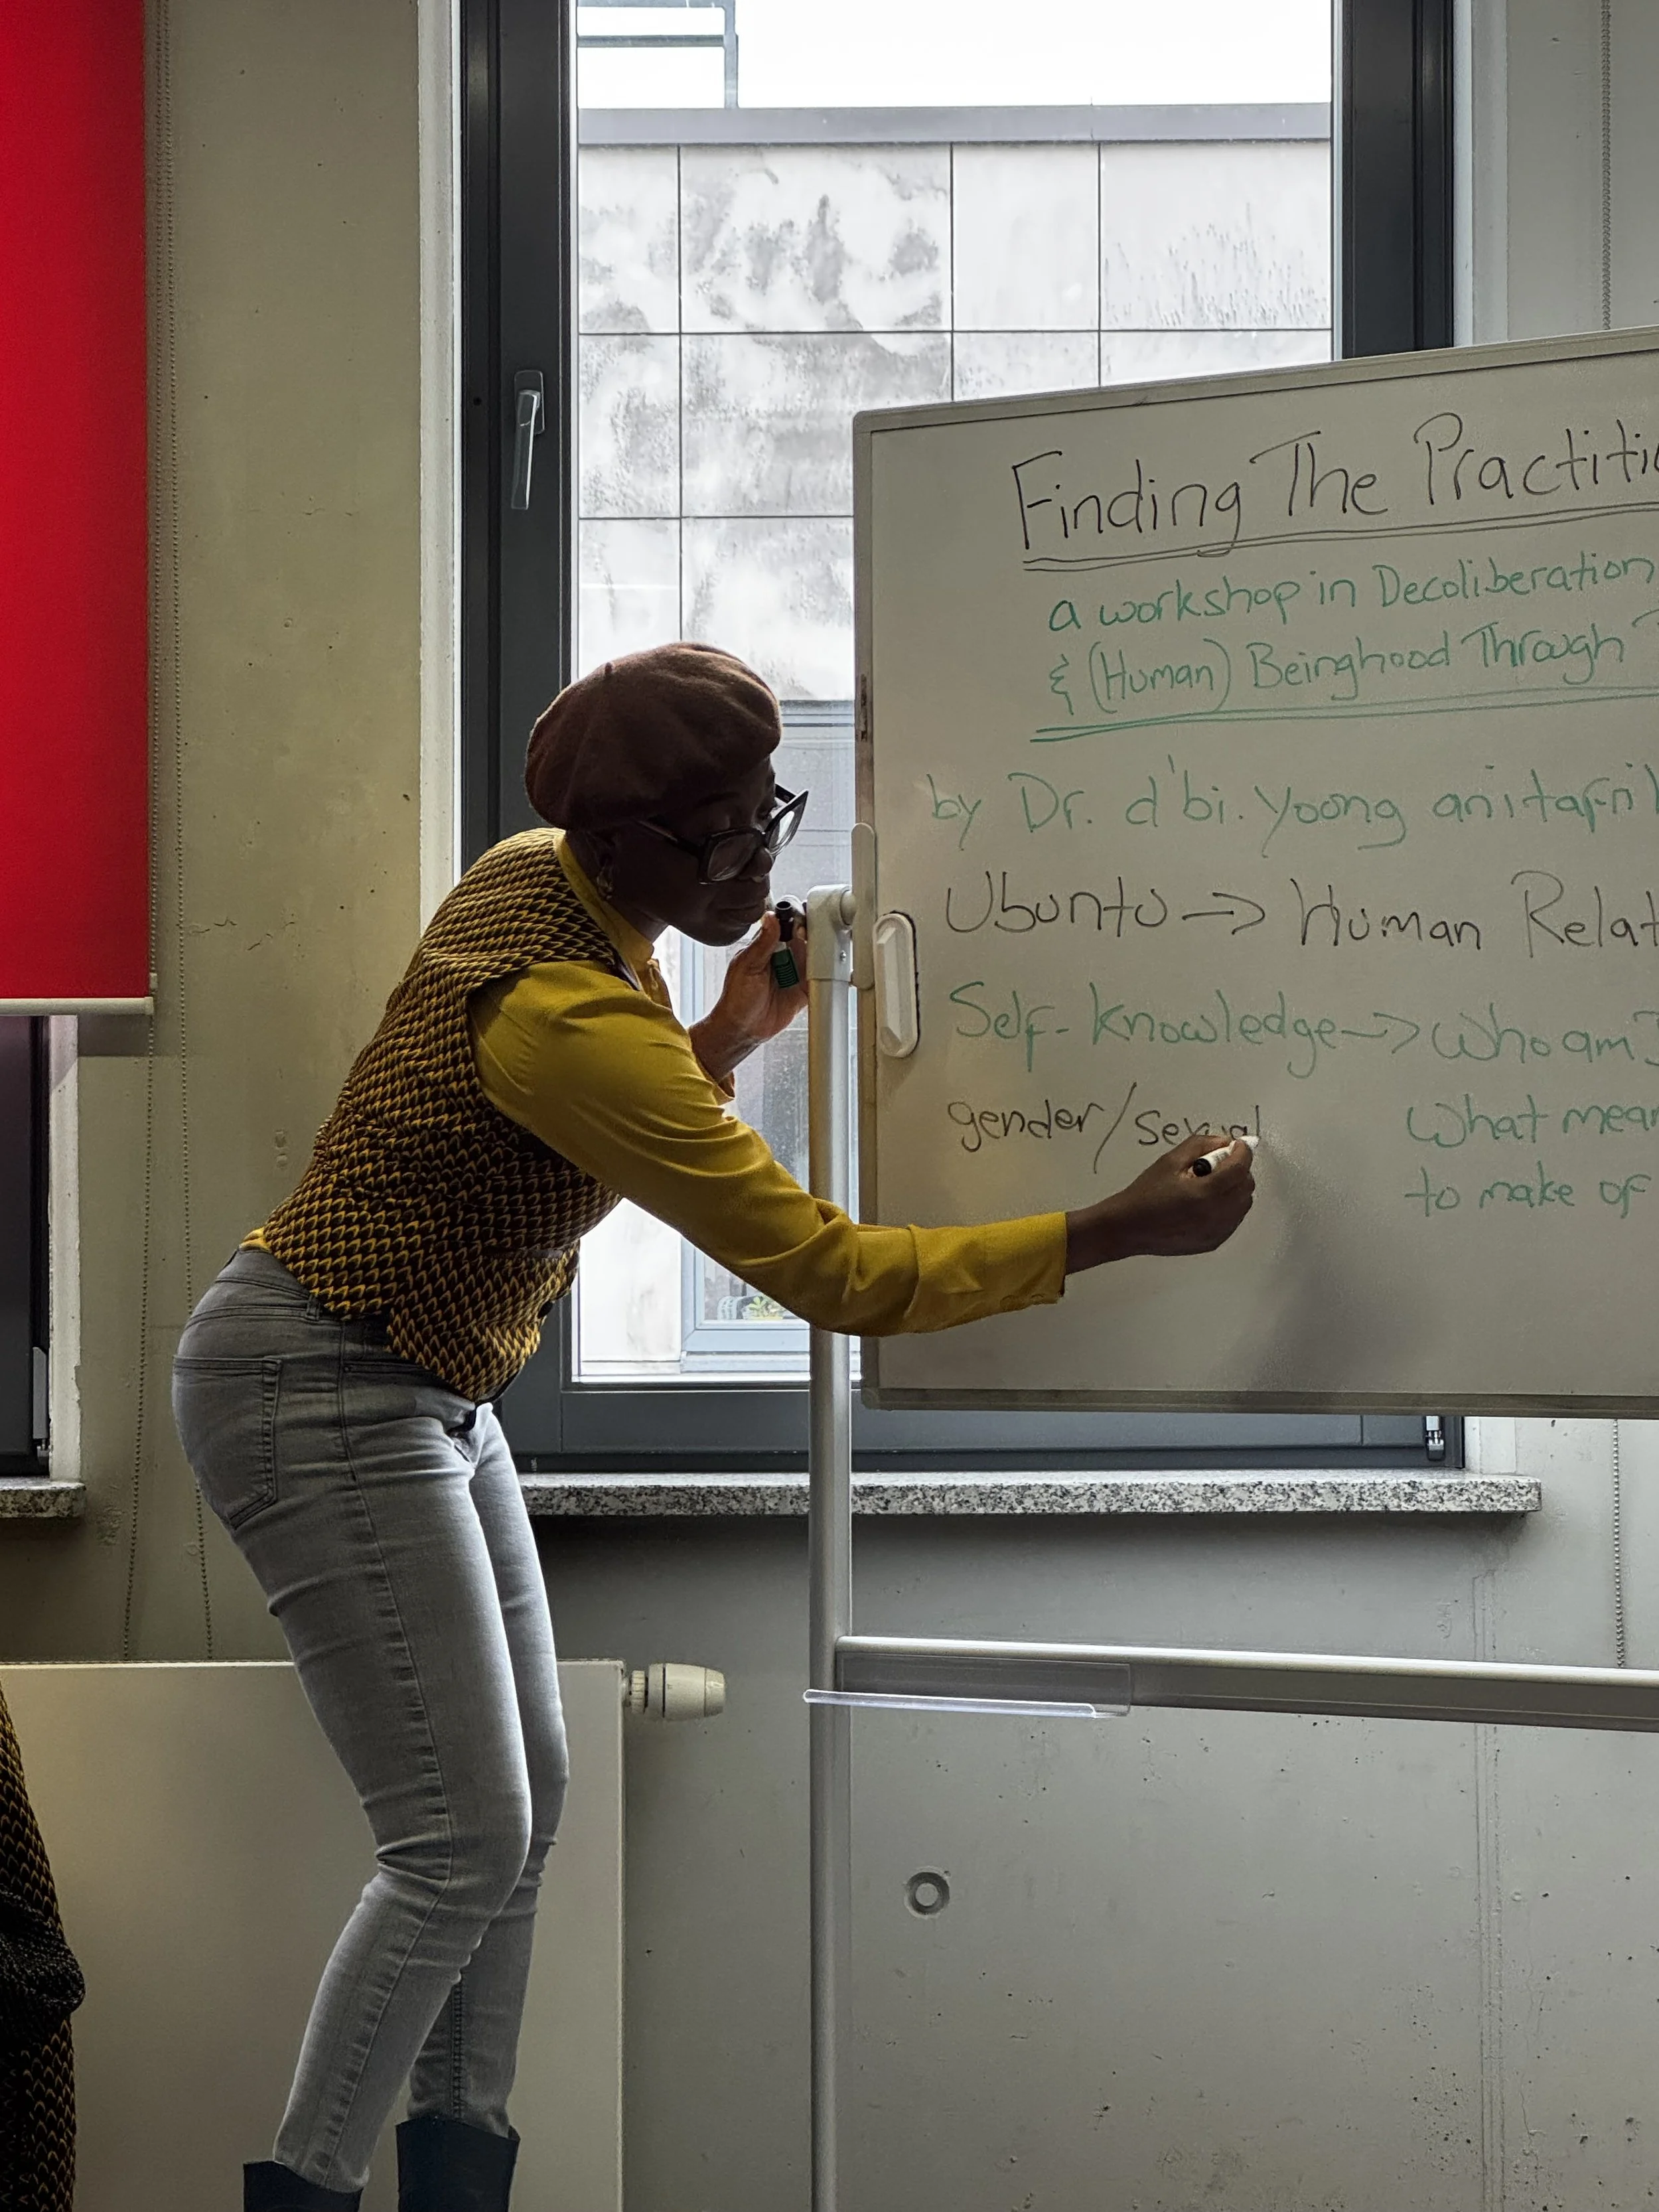 Finding The Practiti
a workshop in Decoliberation
& (Human) Beinghood Through
by Dr. d'bi. young anitafri
Ubuntu -> Human Relat
Self-knowledge -> Who am I
gender/sexual
What mean
to make of